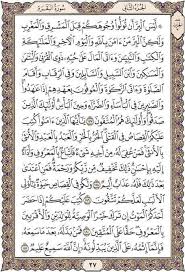 الجزء الثاني سورة البقرة
۞ لَّيْسَ ٱلْبِرَّ أَن تُوَلُّوا۟ وُجُوهَكُمْ قِبَلَ ٱلْمَشْرِقِ وَٱلْمَغْرِبِ
وَلَٰكِنَّ ٱلْبِرَّ مَنْ ءَامَنَ بِٱللَّهِ وَٱلْيَوْمِ ٱلْـَٔاخِرِ وَٱلْمَلَٰٓئِكَةِ
وَٱلْكِتَٰبِ وَٱلنَّبِيِّـۧنَ وَءَاتَى ٱلْمَالَ عَلَىٰ حُبِّهِۦ ذَوِى ٱلْقُرْبَىٰ وَٱلْيَتَٰمَىٰ
وَٱلْمَسَٰكِينَ وَٱبْنَ ٱلسَّبِيلِ وَٱلسَّآئِلِينَ وَفِى ٱلرِّقَابِ وَأَقَامَ
ٱلصَّلَوٰةَ وَءَاتَى ٱلزَّكَوٰةَ وَٱلْمُوفُونَ بِعَهْدِهِمْ إِذَا عَٰهَدُوا۟
وَٱلصَّٰبِرِينَ فِى ٱلْبَأْسَآءِ وَٱلضَّرَّآءِ وَحِينَ ٱلْبَأْسِ أُو۟لَٰٓئِكَ ٱلَّذِينَ
صَدَقُوا۟ وَأُو۟لَٰٓئِكَ هُمُ ٱلْمُتَّقُونَ ١٧٧ يَٰٓأَيُّهَا ٱلَّذِينَ ءَامَنُوا۟ كُتِبَ
عَلَيْكُمُ ٱلْقِصَاصُ فِى ٱلْقَتْلَى ٱلْحُرُّ بِٱلْحُرِّ وَٱلْعَبْدُ بِٱلْعَبْدِ وَٱلْأُنثَىٰ
بِٱلْأُنثَىٰ فَمَنْ عُفِىَ لَهُۥ مِنْ أَخِيهِ شَىْءٌ فَٱتِّبَاعٌۢ بِٱلْمَعْرُوفِ وَأَدَآءٌ
إِلَيْهِ بِإِحْسَٰنٍ ذَٰلِكَ تَخْفِيفٌ مِّن رَّبِّكُمْ وَرَحْمَةٌ فَمَنِ ٱعْتَدَىٰ
بَعْدَ ذَٰلِكَ فَلَهُۥ عَذَابٌ أَلِيمٌ ١٧٨ وَلَكُمْ فِى ٱلْقِصَاصِ حَيَوٰةٌ يَٰٓأُو۟لِى
ٱلْأَلْبَٰبِ لَعَلَّكُمْ تَتَّقُونَ ١٧٩ كُتِبَ عَلَيْكُمْ إِذَا حَضَرَ
أَحَدَكُمُ ٱلْمَوْتُ إِن تَرَكَ خَيْرًا ٱلْوَصِيَّةُ لِلْوَٰلِدَيْنِ وَٱلْأَقْرَبِينَ
بِٱلْمَعْرُوفِ حَقًّا عَلَى ٱلْمُتَّقِينَ ١٨٠ فَمَنۢ بَدَّلَهُۥ بَعْدَ مَا سَمِعَهُۥ
فَإِنَّمَآ إِثْمُهُۥ عَلَى ٱلَّذِينَ يُبَدِّلُونَهُۥٓ إِنَّ ٱللَّهَ سَمِيعٌ عَلِيمٌ ١٨١
٢٧